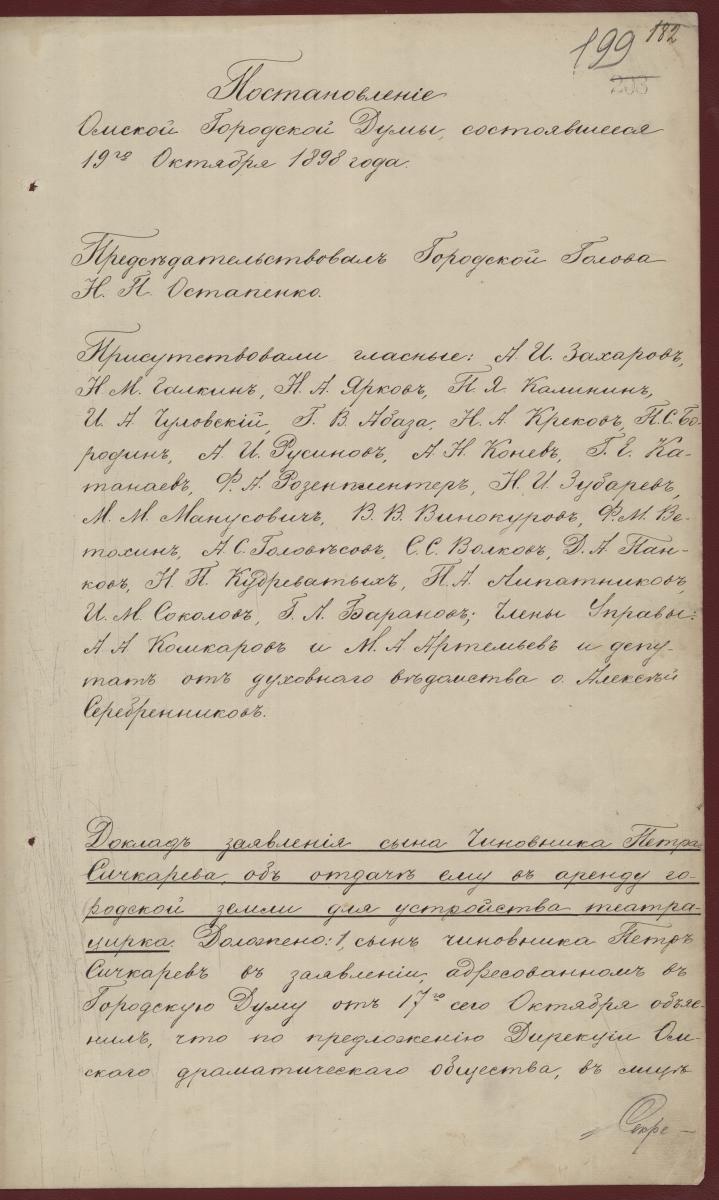 199 182
203
Постановленіе
Омской Городской Думы, состоявшееся
19го Октября 1898 года.
Предсѣдательствовалъ Городской Голова
Н. П. Остапенко.
Присутствовали гласные: А. И. Захаровъ,
Н. М. Галкинъ, Н. А. Ярковъ, П. Я. Калининъ,
И. А. Чуловскій, Г. В. Абаза, Н. А. Крековъ, П. С. Бо-
родинъ, А. И. Русиновъ, А. Н. Коневъ, Г. Е. Ка-
танаевъ, Ф. А. Розенплентеръ, Н. И. Зубаревъ,
М. М. Манусовичъ, В. В. Винокуровъ, Ф. М. Ве-
тохинъ, А. С. Головѣсовъ, С. С. Волковъ, Д. А. Пан-
ковъ, Н. П. Кудреватыхъ, П. А. Липатниковъ,
И. М. Соколовъ, Г. А. Барановъ; Члены Управы:
А. А. Комкаровъ и М. А. Артемьевъ и депу-
татъ отъ духовнаго вѣдомства о. Алексѣй
Серебренниковъ.
Докладъ заявленія сына Чиновника Петра
Сичкарева, объ отдачѣ ему въ аренду го-
родской земли для устройства театра-
цирка. Доложено: 1, сынъ чиновника Петръ
Сичкаревъ въ заявленіи, адресованномъ въ
Городскую Думу отъ 17го сего Октября объяс-
нилъ, что по предложенію Дирекціи Ом-
скаго драматическаго общества, въ лицѣ
Секре-